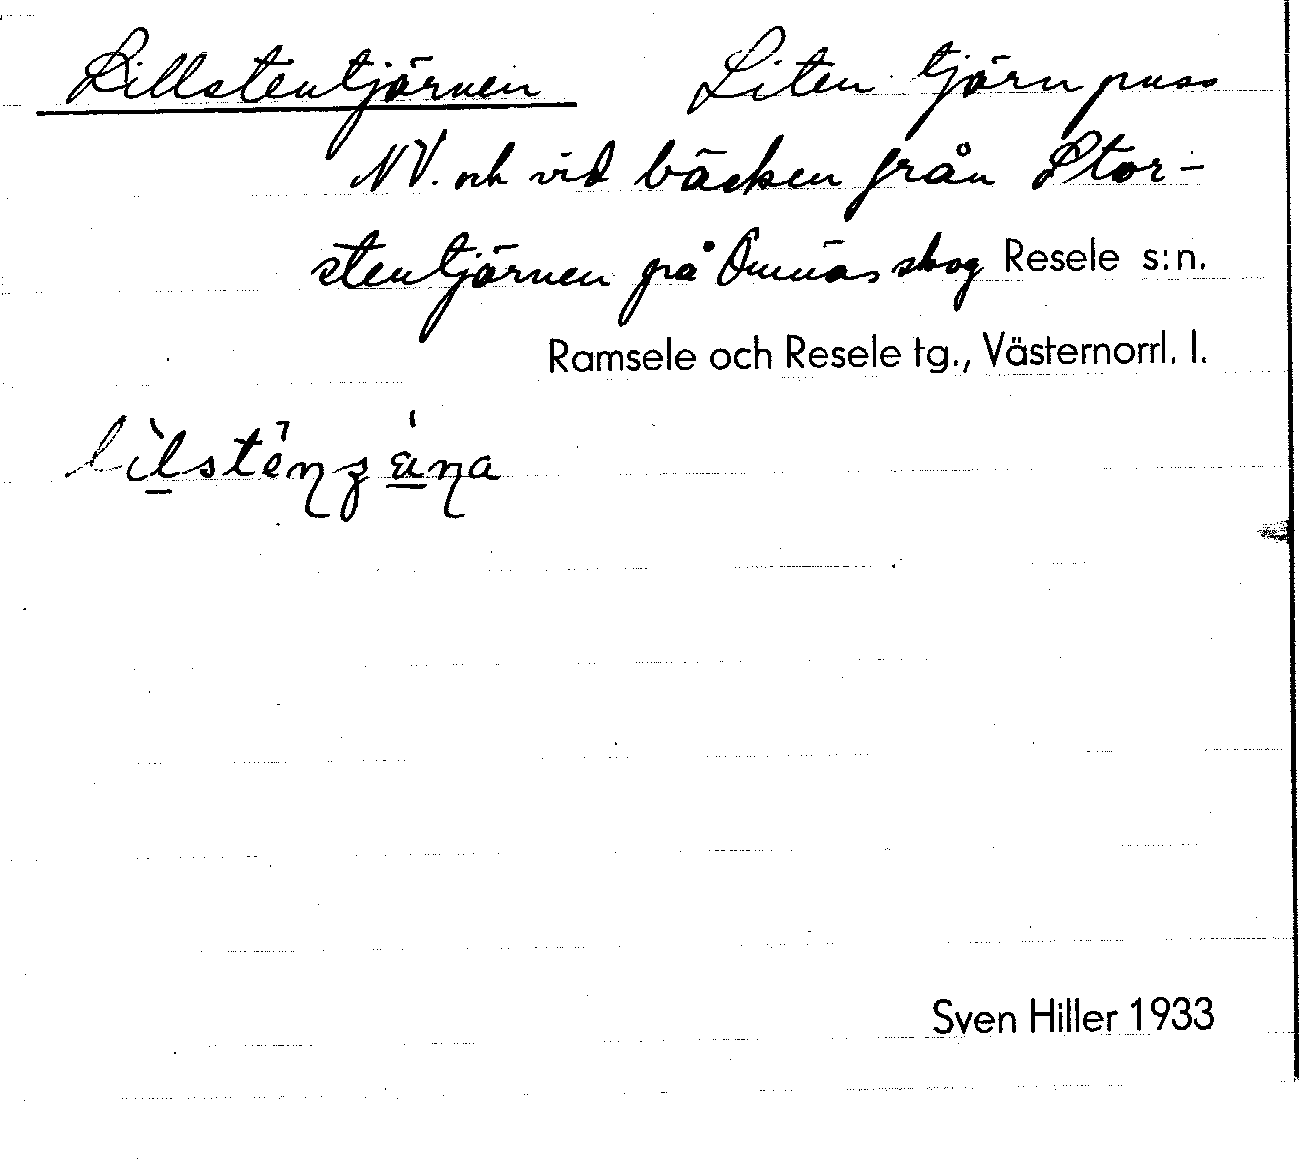 Lillstentjärnen Liten tjärnpuss
NV. och vid bäcken från Stor-
stentjärnen på Omnäs skog Resele s:n.
Ramsele och Resele tg., Västernorrl. l.
Sven Hiller 1933